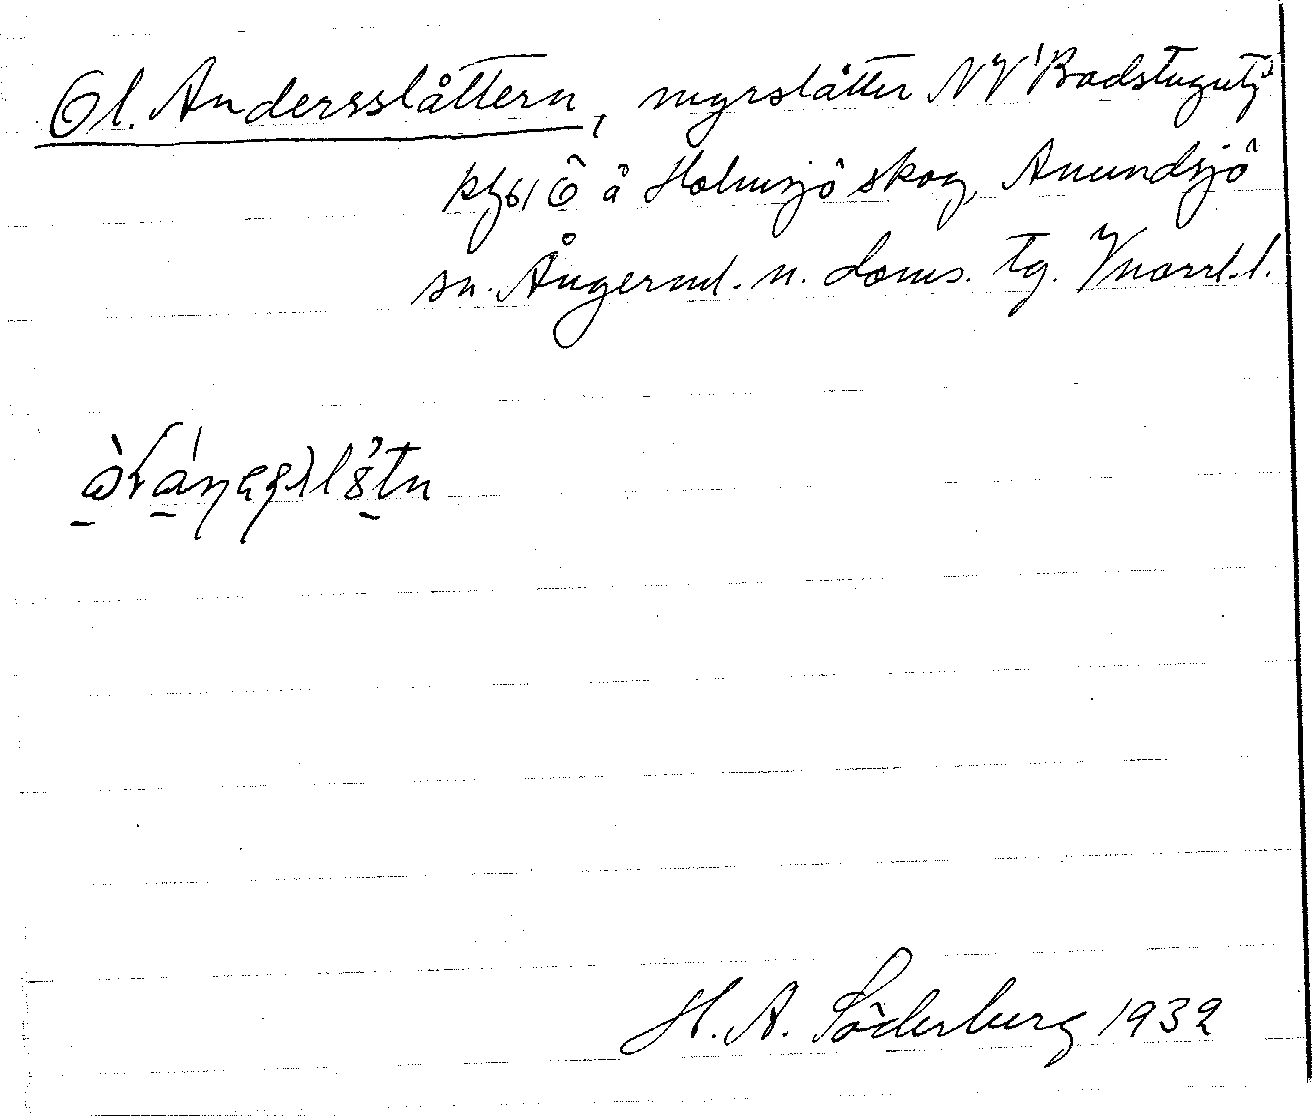 Ol. Andersslåttern, myrslåtter NV Badstugutj
Ö å Holmsjö skog, Anundsjö
sn. Ångerml. n. doms. tg. Vnorrl. l.
H. A. Söderberg 1932